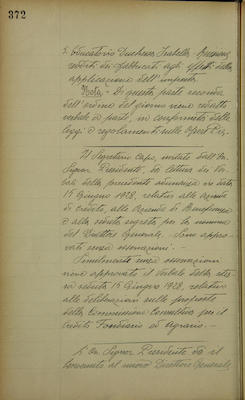 372
5. Educatorio Duchessa Isabella. Revisione
redditi dei fabbricati agli effetti della
applicazione dell'imposta.
Nota - Di questa parte seconda
dell'ordine del giorno viene redatto
verbale a parte, in conformità delle
leggi e regolamenti sulle Opere Pie.
Il Segretario Capo, invitato dall'On.
Signor Presidente, dà lettura dei ver-
bali della precedente adunanza in data
15 Giugno 1928, relativi alle aziende
di credito, alle Aziende di Beneficenza
e alla seduta segreta per la nomina
del Direttore Generale. Sono appro-
vati senza osservazioni.
Similmente senza osservazioni
viene approvato il verbale della stes-
sa seduta 15 Giugno 1928, relativo
alle deliberazioni sulle proposte
della Commissione Consultiva per il
Credito Fondiario ed Agrario.
L'On. Signor Presidente dà il
benvenuto al nuovo Direttore Generale